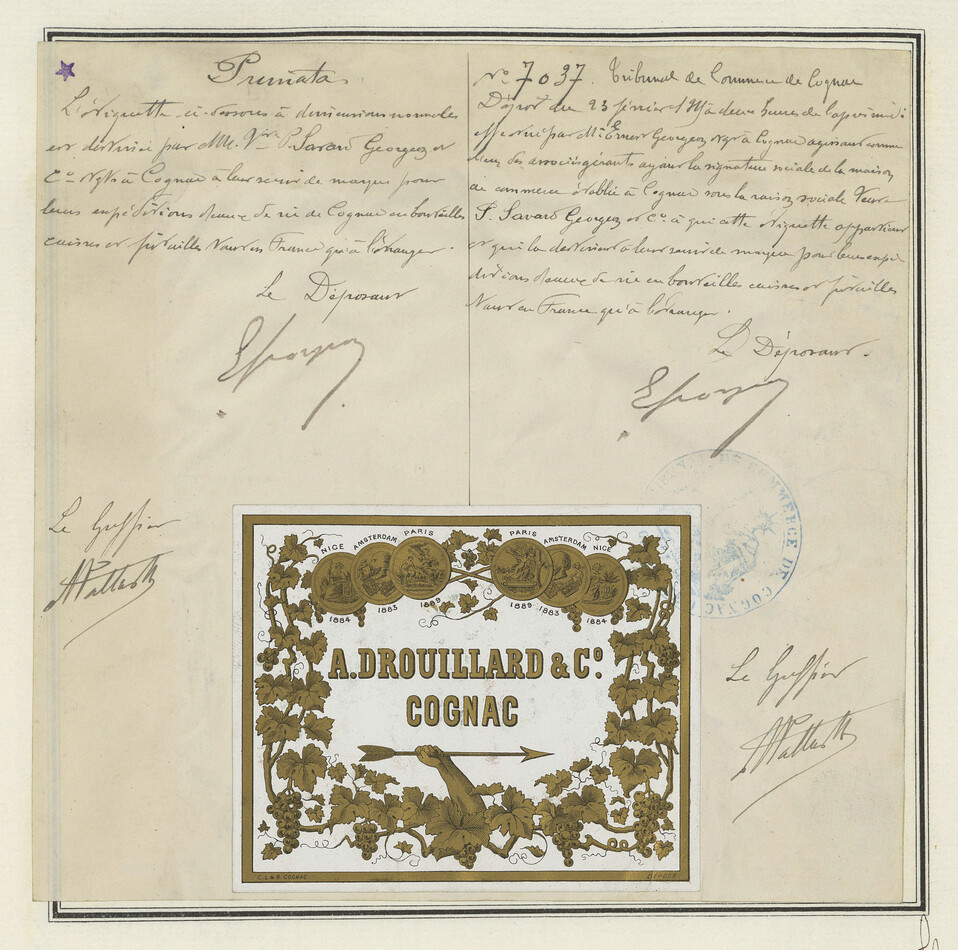 Primata
L'étiquette ci-dessous à dimensions normales
est destinée par MM. Vve P. Savard Georgeon et
Cie Ngts à Cognac à leur servir de marque pour
leurs expéditions d'eaux de vie de Cognac en bouteilles
caisses et futailles tant en France qu'à l'étranger.
Le Déposant
Le Greffier
No 7037. Tribunal de Commerce de Cognac
Dépôt du 23 février à deux heures de l'après midi
effectué par Mr Ernest Georgeon Ngt à Cognac agissant comme
l'un des associés gérants ayant la signature sociale de la maison
de commerce établie à Cognac sous la raison sociale Veuve
P. Savard Georgeon et Cie à qui cette étiquette appartient
et qui la destinent à leur servir de marque pour leurs expé
ditions d'eaux de vie en bouteilles caisses et futailles
tant en France qu'à l'étranger.
Le Déposant.
TRIBUNAL DE COMMERCE DE COGNAC
Le Greffier
NICE AMSTERDAM PARIS
PARIS AMSTERDAM NICE
1884 1883 1889
1889 1883 1884
A. DROUILLARD & Co.
COGNAC
C. L & B. COGNAC
DÉPOSÉ